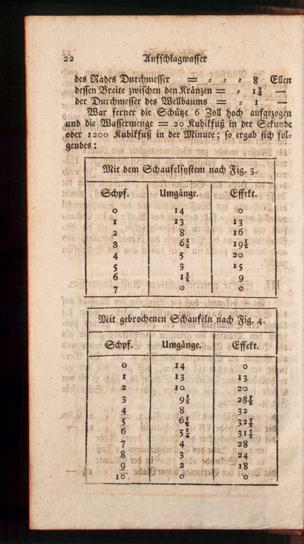 22 Aufschlagwasser
des Rades Durchmesser = = = 8 Ellen
dessen Breite zwischen den Kränzen = = 1¾ —
der Durchmesser des Wellbaums = = 1 —
War ferner die Schütze 6 Zoll hoch aufgezogen
und die Wassermenge = 20 Kubikfuß in der Sekunde
oder 1200 Kubikfuß in der Minute; so ergab sich fol-
gendes:
Mit dem Schaufelsystem nach Fig. 3.
Schpf. Umgänge. Effekt.
0 14 0
1 13 13
2 8 16
3 6½ 19½
4 5 20
5 3 15
6 1½ 9
7 0 0
Mit gebrochenen Schaufeln nach Fig. 4.
Schpf. Umgänge. Effekt.
0 14 0
1 13 13
2 10 20
3 9½ 28½
4 8 32
5 6½ 32½
6 5¼ 31½
7 4 28
8 3 24
9 2 18
10 0 0